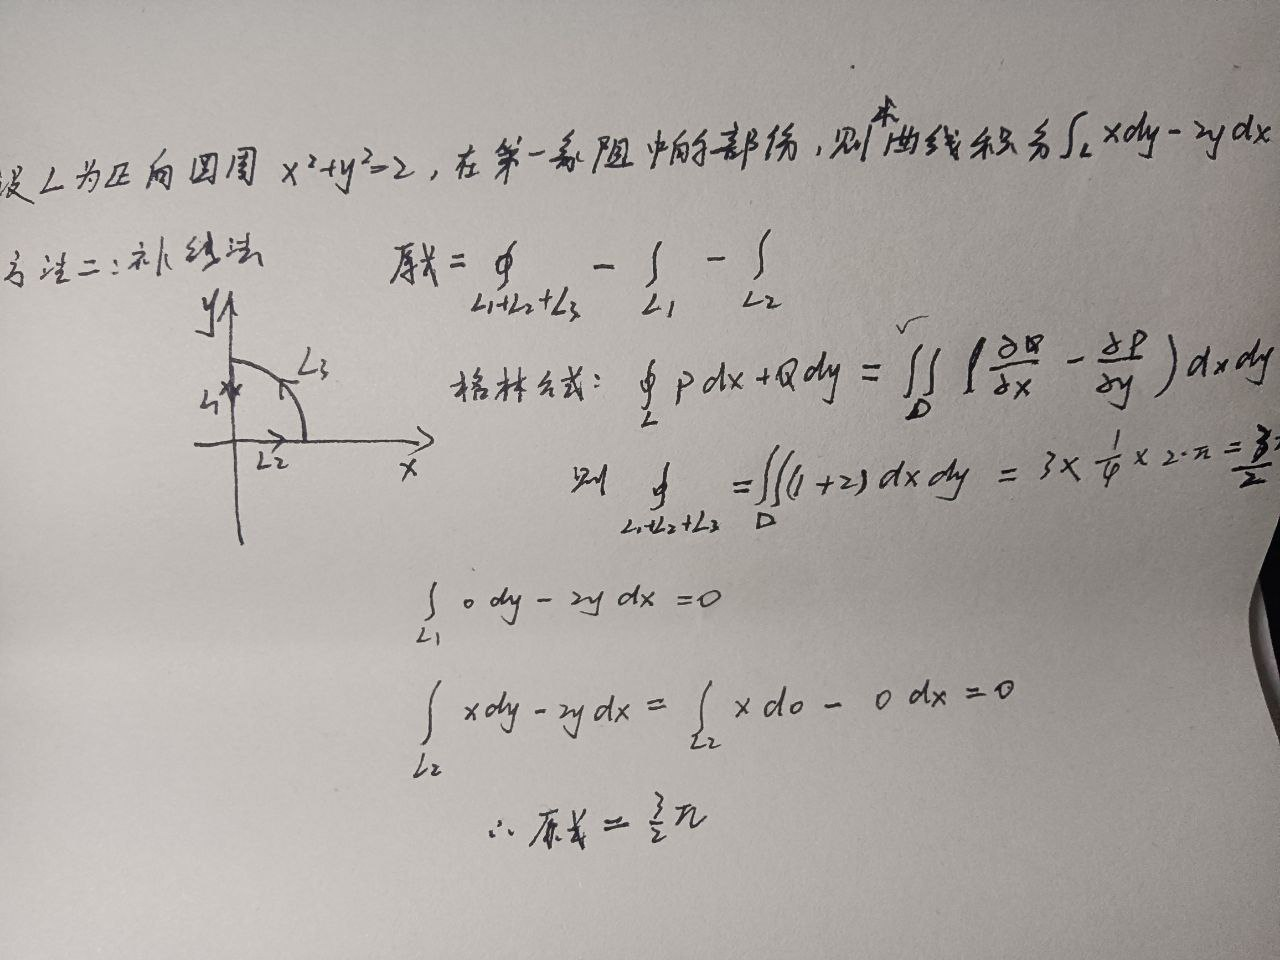 设L为正向圆周 x²+y²=2, 在第一象限中的部份, 则求曲线积分∫_L xdy-2ydx
方法二: 补线法
原式 = ∮_{L₁+L₂+L₃} - ∫_{L₁} - ∫_{L₂}
y L₃ L₁ L₂ x
格林公式: ∮_L Pdx+Qdy = ∬_D (∂Q/∂x - ∂P/∂y) dxdy
则 ∮_{L₁+L₂+L₃} = ∬_D (1+2) dxdy = 3×1/4×2·π = 3/2 π
∫_{L₁} 0dy - 2ydx = 0
∫_{L₂} xdy - 2ydx = ∫_{L₂} xd0 - 0dx = 0
∴ 原式 = 3/2 π